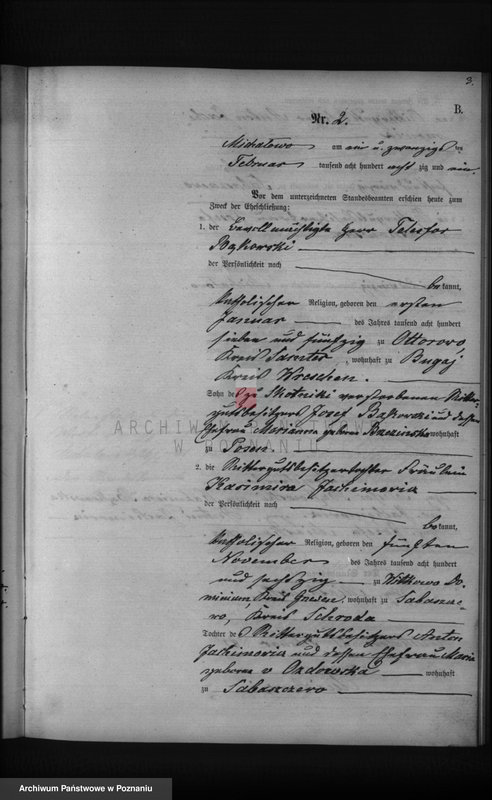 3.
B.
Nr. 2.
Michałowo am ein u. zwanzigsten
Februar tausend acht hundert acht zig und ein
Vor dem unterzeichneten Standesbeamten erschien heute zum
Zweck der Eheschließung:
1. der Bevollmächtigte Herr Telesfor
der Persönlichkeit nach
be kannt,
katholischer Religion, geboren den ersten
Januar des Jahres tausend acht hundert
sieben und fünfzig zu Ottorowo,
Kreis Samter, wohnhaft zu Bugaj
Kreis Wreschen.
Sohn des zu Skotniki verstorbenen Ritter-
gutsbesitzers Josef Bąkowski und dessen
Ehefrau Marianna geborne Brzezinska wohnhaft
ARCHIWUM PAŃSTWOWE
W POZNANIU
zu Posen.
2. die Rittergutsbesitzertochter Fräulein
Kasimira Jachimowicz
der Persönlichkeit nach
be kannt,
katholischer Religion, geboren den fünften
November des Jahres tausend acht hundert
und sechszig zu Witkowo Do-
minium, Kreis Gnesen, wohnhaft zu
Kreis Schroda
Tochter des Rittergutsbesitzers Anton
und dessen Ehefrau Maria
geborne v wohnhaft
zu
Archiwum Państwowe w Poznaniu